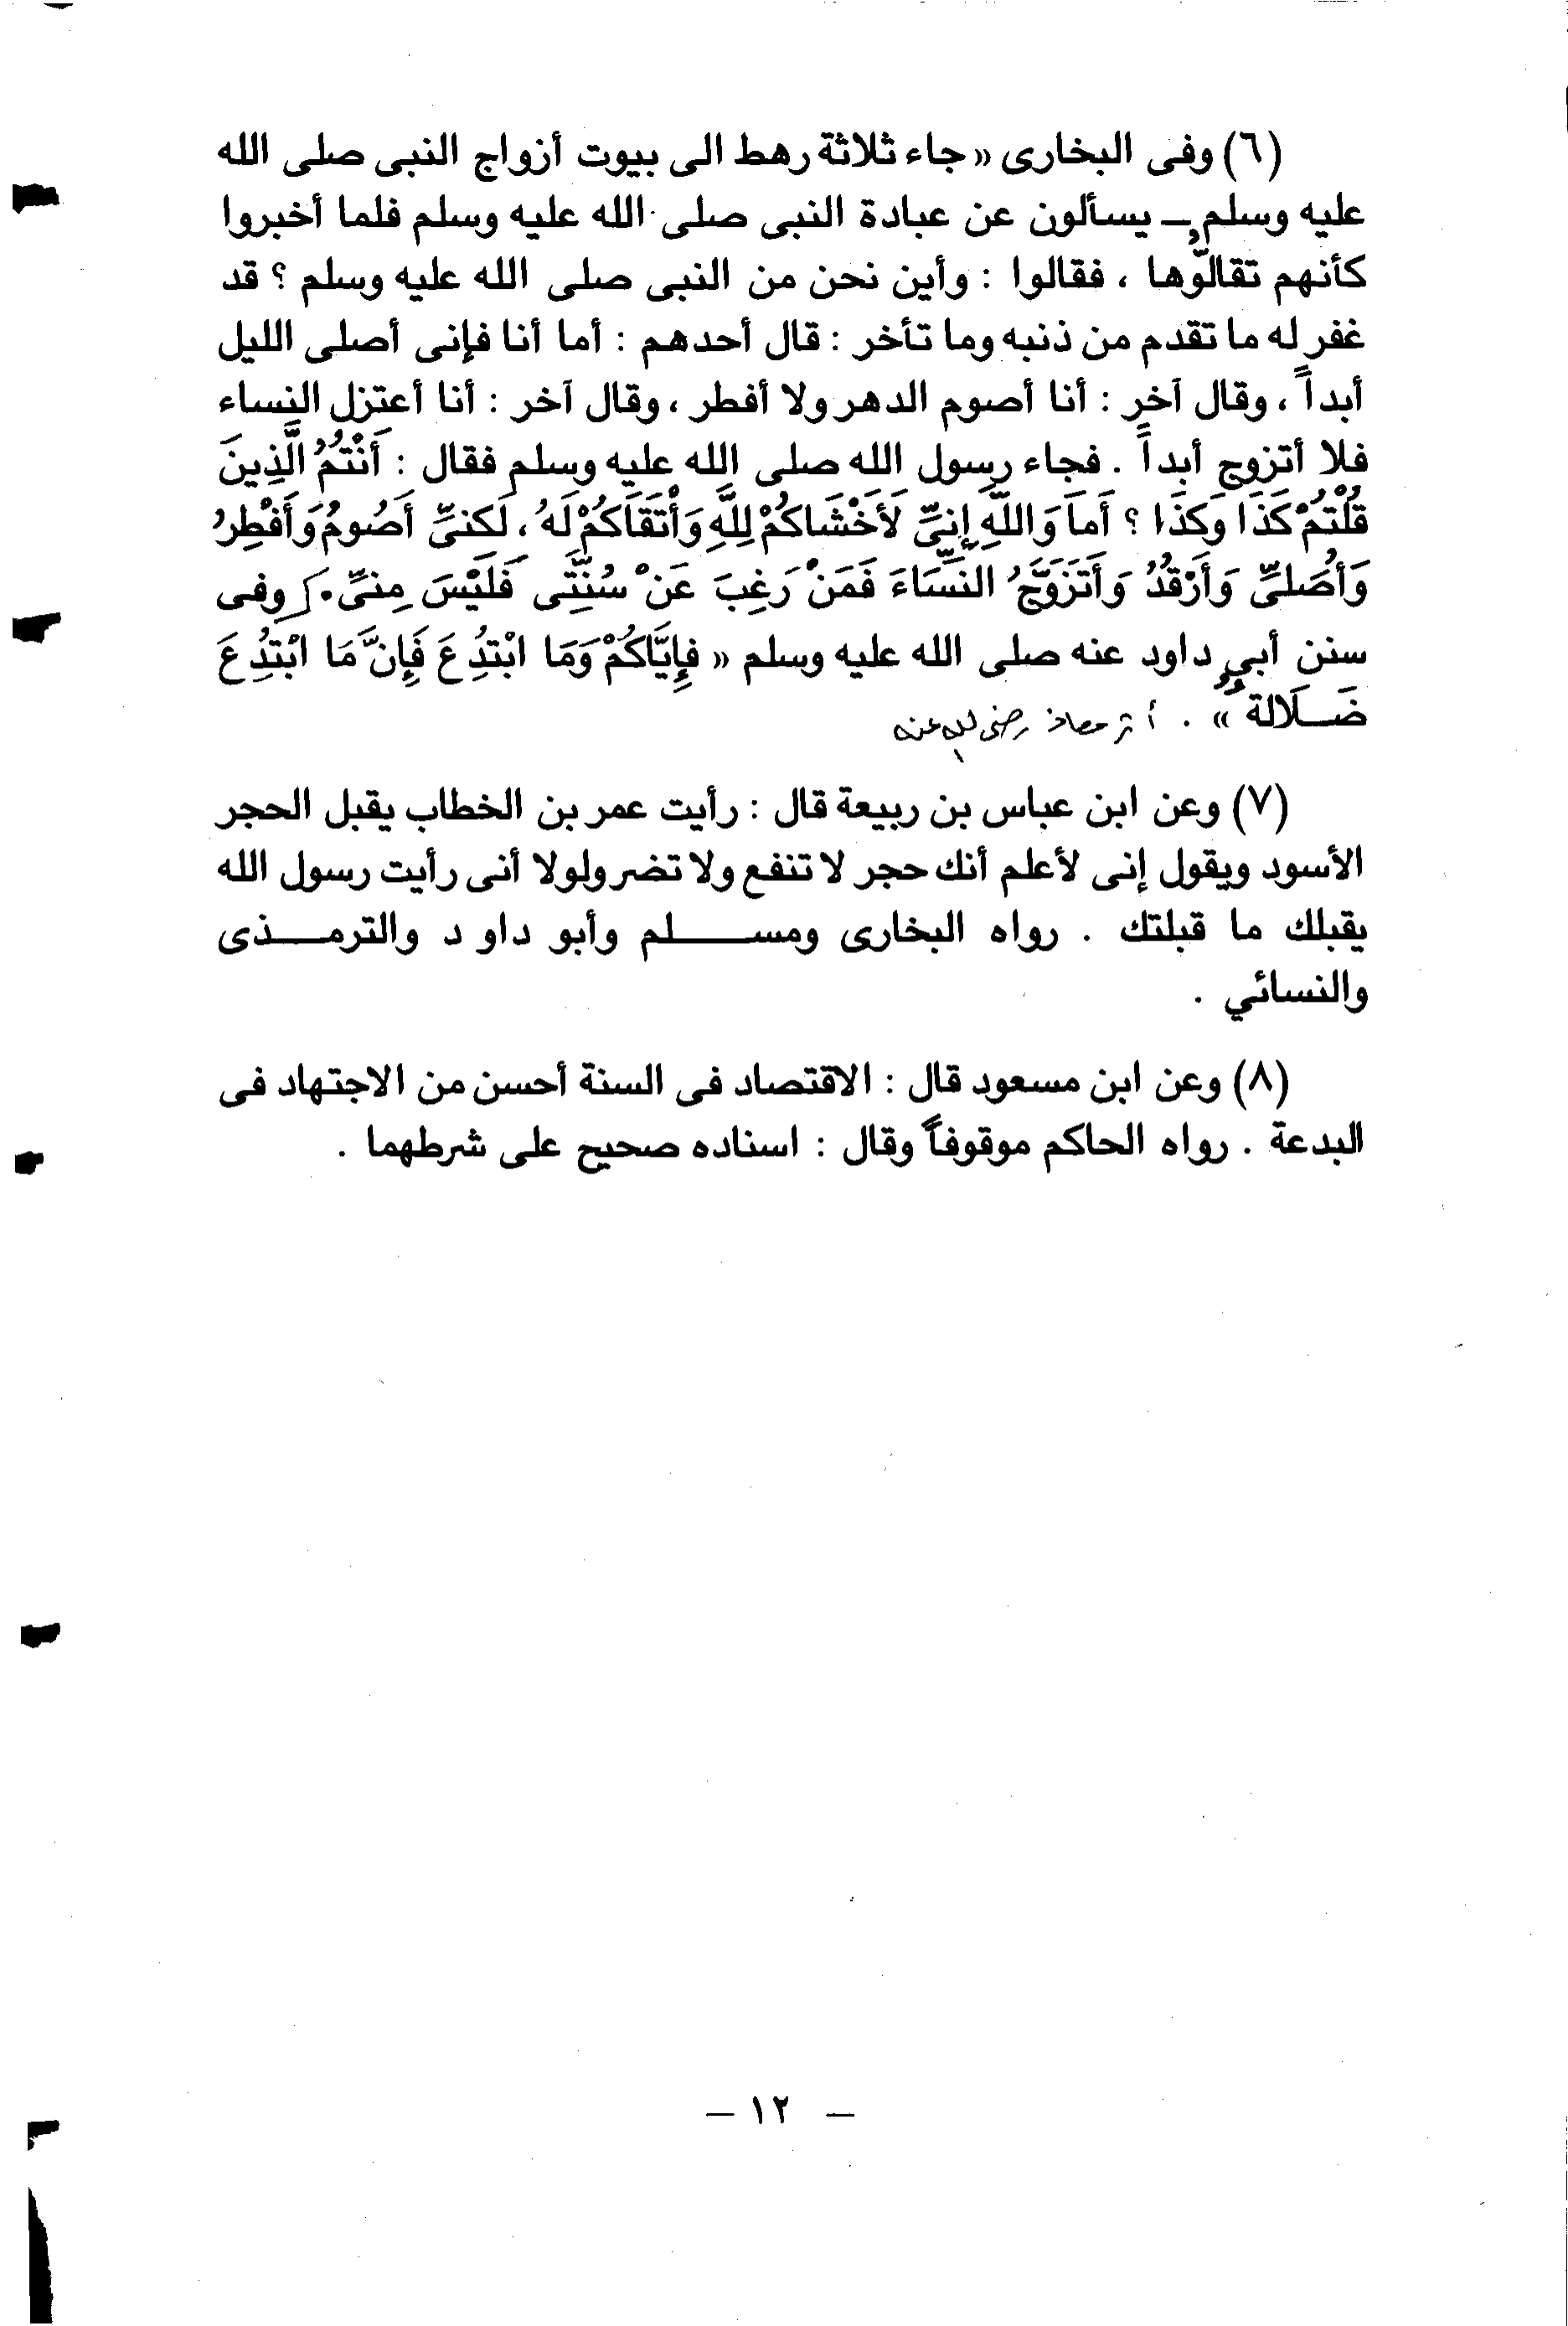 (٦) وفى البخارى « جاء ثلاثة رهط الى بيوت أزواج النبى صلى الله
عليه وسلم ـ يسألون عن عبادة النبى صلى الله عليه وسلم فلما أخبروا
كأنهم تقالّوها ، فقالوا : وأين نحن من النبى صلى الله عليه وسلم ؟ قد
غفر له ما تقدم من ذنبه وما تأخر : قال أحدهم : أما أنا فإنى أصلى الليل
أبداً ، وقال آخر : أنا أصوم الدهر ولا أفطر ، وقال آخر : أنا أعتزل النساء
فلا أتزوج أبداً . فجاء رسول الله صلى الله عليه وسلم فقال : أَنْتُمُ الَّذِينَ
قُلْتُمْ كَذَا وَكَذَا ؟ أَمَا وَاللَّهِ إِنىِّ لَأَخْشَاكُمْ لِلَّهِ وَأَتْقَاكُمْ لَهُ ، لَكنىِّ أَصُومُ وَأَفْطِرُ
وَأُصَلىِّ وَأَرْقُدُ وَأَتَزَوَّجُ النسَّاءَ فَمَنْ رَغِبَ عَنْ سُنَّتِى فَلَيْسَ مِنىِّ . وفى
سنن أبى داود عنه صلى الله عليه وسلم « فإِيَّاكُمْ وَمَا ابْتُدِعَ فَإِنَّ مَا ابْتُدِعَ
ضَـلَالة » . أثر معاذ رضى الله عنه
(٧) وعن ابن عباس بن ربيعة قال : رأيت عمر بن الخطاب يقبل الحجر
الأسود ويقول إنى لأعلم أنك حجر لا تنفع ولا تضر ولولا أنى رأيت رسول الله
يقبلك ما قبلتك . رواه البخارى ومســـلم وأبو داو د والترمـــذى
والنسائي .
(٨) وعن ابن مسعود قال : الاقتصاد فى السنة أحسن من الاجتهاد فى
البدعة . رواه الحاكم موقوفاً وقال : اسناده صحيح على شرطهما .
– ١٢ –